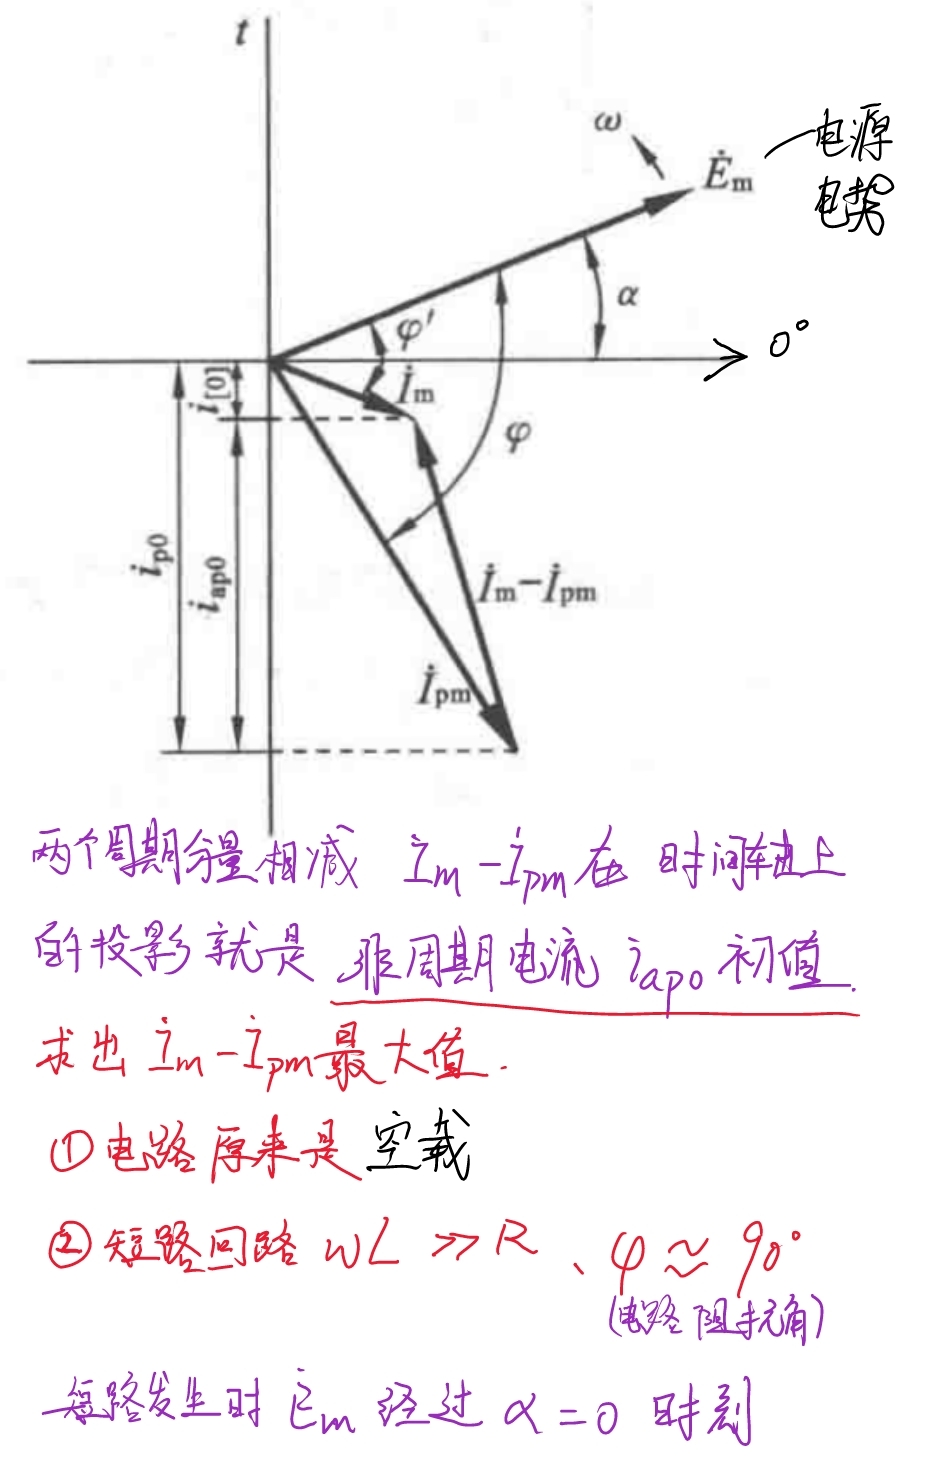 t
ω
Ėm
电源
电势
α
φ′
0°
i[0]
İm
φ
ip0
iap0
İm−İpm
İpm
两个周期分量相减 İm-İpm在时间轴上
的投影就是 非周期电流 iap0 初值.
求出 İm-İpm最大值.
①电路原来是空载
②短路回路 wL ≫ R、φ≈90°
(电路阻抗角)
短路发生时 Ėm 经过 α=0 时刻